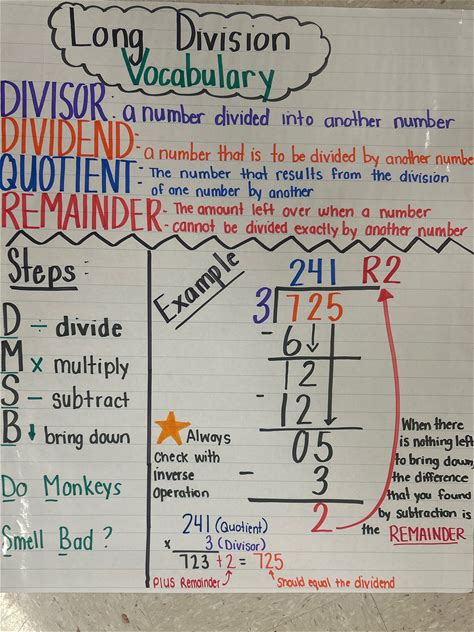 Long Division
Vocabulary
DIVISOR: a number divided into another number
DIVIDEND: a number that is to be divided by another number
QUOTIENT: The number that results from the division
of one number by another
REMAINDER - The amount left over when a number
- cannot be divided exactly by another number
Steps:
D ÷ divide
M x multiply
S - subtract
B ↓ bring down
Do Monkeys
Smell Bad?
Example
241 R2
3 725
- 6↓
12
- 12
05
- 3
2
When there
is nothing left
to bring down,
the difference
that you found
by subtraction is
the REMAINDER
★ Always
check with
inverse
operation
241 (Quotient)
x 3 (Divisor)
723 + 2 = 725
plus Remainder
should equal the dividend